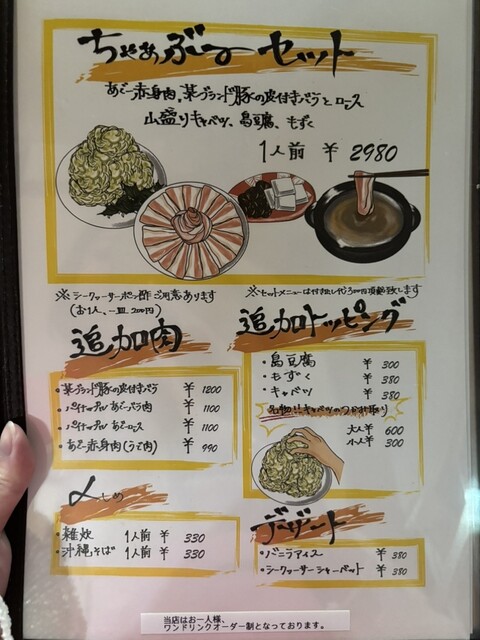 ちゃあぶーセット
あぐー赤身肉、某ブランド豚の皮付きバラとロース
山盛りキャベツ、島豆腐、もずく
1人前 ¥ 2980
※シークァーサーポン酢ご用意あります
(お1人、一皿 200円)
※セットメニューは付き出し代300円頂戴致します
追加肉
・某ブランド豚の皮付きバラ ¥ 1200
あぐーバラ肉 ¥ 1100
あぐーロース ¥ 1100
・あぐー赤身肉(うで肉) ¥ 990
追加トッピング
・島豆腐 ¥ 300
・もずく ¥ 380
・キャベツ ¥ 380
名物!!キャベツのつかみ取り
大人 ¥ 600
小人 ¥ 300
〆 しめ
・雑炊 1人前 ¥ 330
・沖縄そば 1人前 ¥ 330
デザート
・バニラアイス ¥ 380
・シークァーサーシャーベット ¥ 380
当店はお一人様、
ワンドリンクオーダー制となっております。